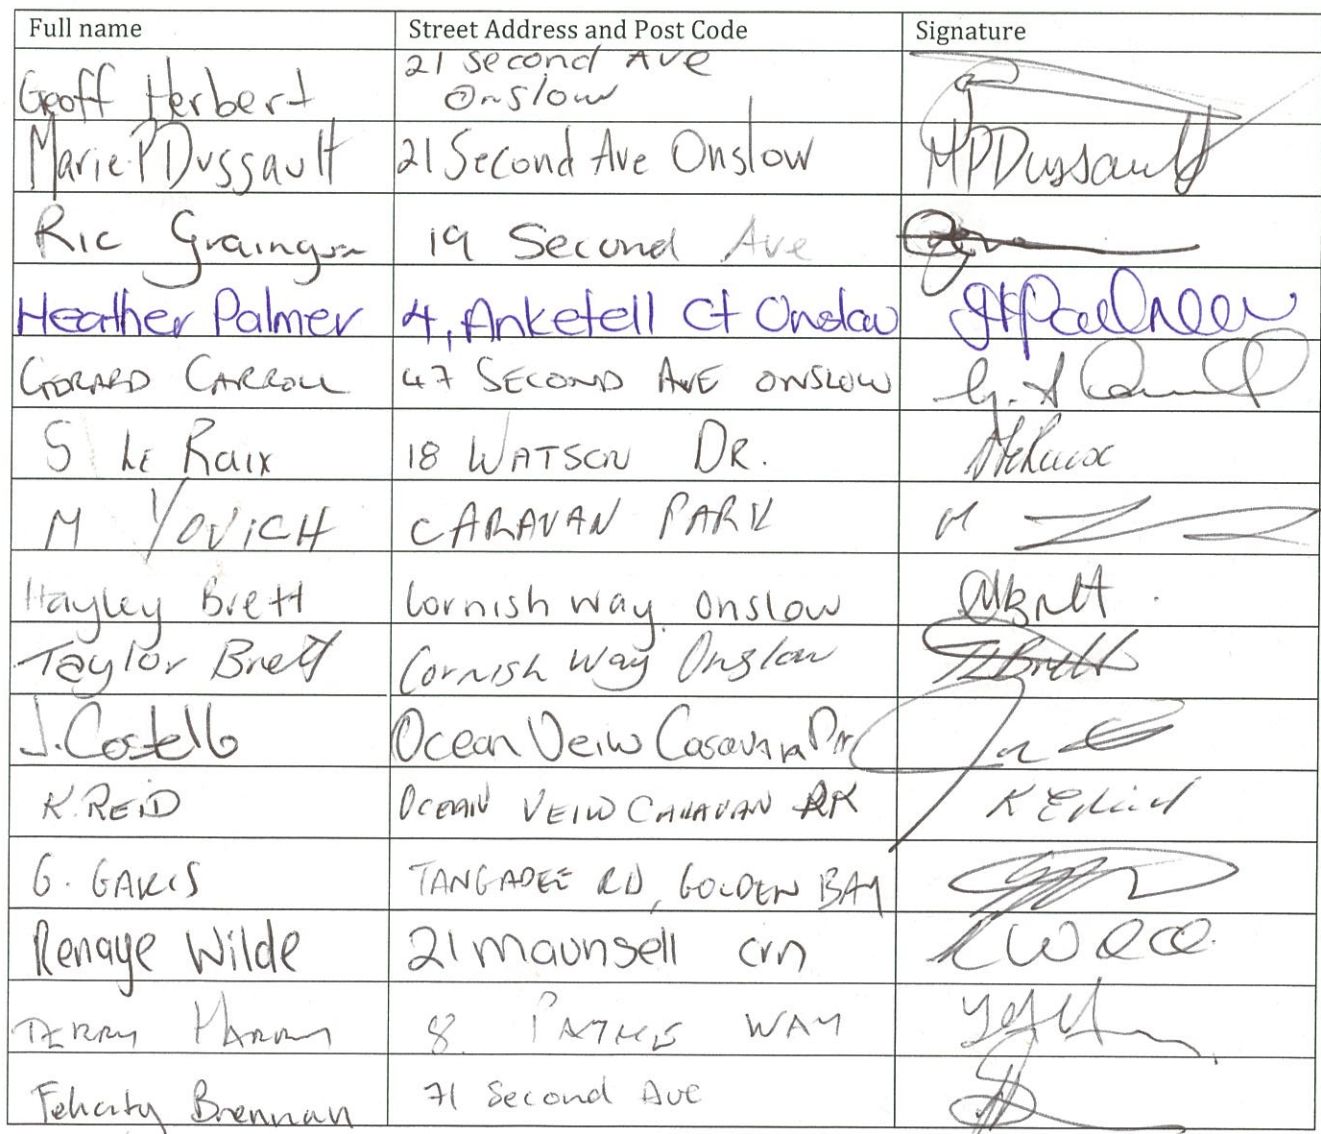 Full name Street Address and Post Code Signature
Geoff Herbert 21 Second Ave
Onslow
Marie P Dussault 21 Second Ave Onslow MPDussault
Ric Grainger 19 Second Ave
Heather Palmer 4, Anketell Ct Onslow
GERARD CARROLL 47 SECOND AVE ONSLOW
S Le Raix 18 WATSON DR.
M YOVICH CARAVAN PARK M
Hayley Brett Cornish Way Onslow
Taylor Brett Cornish Way Onslow TBrett
J. Costello Ocean Veiw
K. REID OCEAN VEIW CARAVAN PK
G. TANGADEE RD, GOLDEN BAY
Renaye Wilde 21 Maunsell crn
TERRY 8 WAY
Felicity Brennan 71 Second Ave